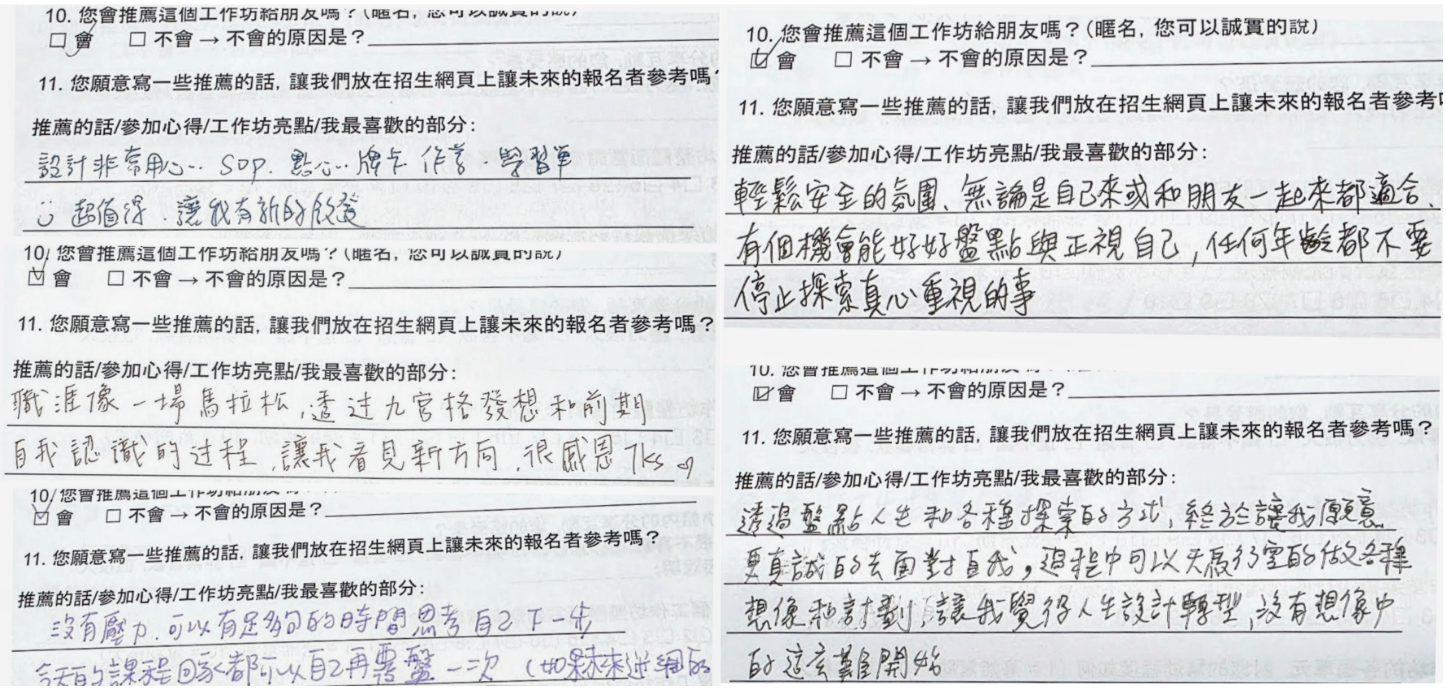 10. 您會推薦這個工作坊給朋友嗎？(匿名, 您可以誠實的說)
會 □ 不會 → 不會的原因是？
11. 您願意寫一些推薦的話, 讓我們放在招生網頁上讓未來的報名者參考嗎?
推薦的話/參加心得/工作坊亮點/我最喜歡的部分：
設計非常用心.. SOP. 點心.. 牌卡 作業 學習單
超值得. 讓我有新的啟發
10. 您會推薦這個工作坊給朋友嗎？(匿名, 您可以誠實的說)
☑ 會 □ 不會 → 不會的原因是？
11. 您願意寫一些推薦的話, 讓我們放在招生網頁上讓未來的報名者參考嗎？
推薦的話/參加心得/工作坊亮點/我最喜歡的部分：
職涯像一場馬拉松, 透过九宮格發想和前期
自我認識的过程, 讓我看見新方向, 很感恩 Tks ♡
10. 您會推薦這個工作坊給朋友嗎
☑ 會 □ 不會 → 不會的原因是？
11. 您願意寫一些推薦的話, 讓我們放在招生網頁上讓未來的報名者參考嗎？
推薦的話/參加心得/工作坊亮點/我最喜歡的部分：
沒有壓力. 可以有足夠的時間思考自己下一步
今天的課程回家都可以自己再盤一次 (如果未來出網路
10. 您會推薦這個工作坊給朋友嗎？(匿名, 您可以誠實的說)
☑ 會 □ 不會 → 不會的原因是？
11. 您願意寫一些推薦的話, 讓我們放在招生網頁上讓未來的報名者參考
推薦的話/參加心得/工作坊亮點/我最喜歡的部分：
輕鬆安全的氛圍、無論是自己來或和朋友一起來都適合
有個機會能好好盤點與正視自己, 任何年齡都不要
停止探索真心重視的事
10. 您會推薦這個工作坊給朋友嗎
☑ 會 □ 不會 → 不會的原因是？
11. 您願意寫一些推薦的話, 讓我們放在招生網頁上讓未來的報名者參考嗎？
推薦的話/參加心得/工作坊亮點/我最喜歡的部分：
透過盤點人生和各種探索的方式, 終於讓我願意
更真誠的去面對自我, 過程中可以天馬行空的做各種
想像和計劃, 讓我覺得人生設計轉型, 沒有想像中
的這麼難開始